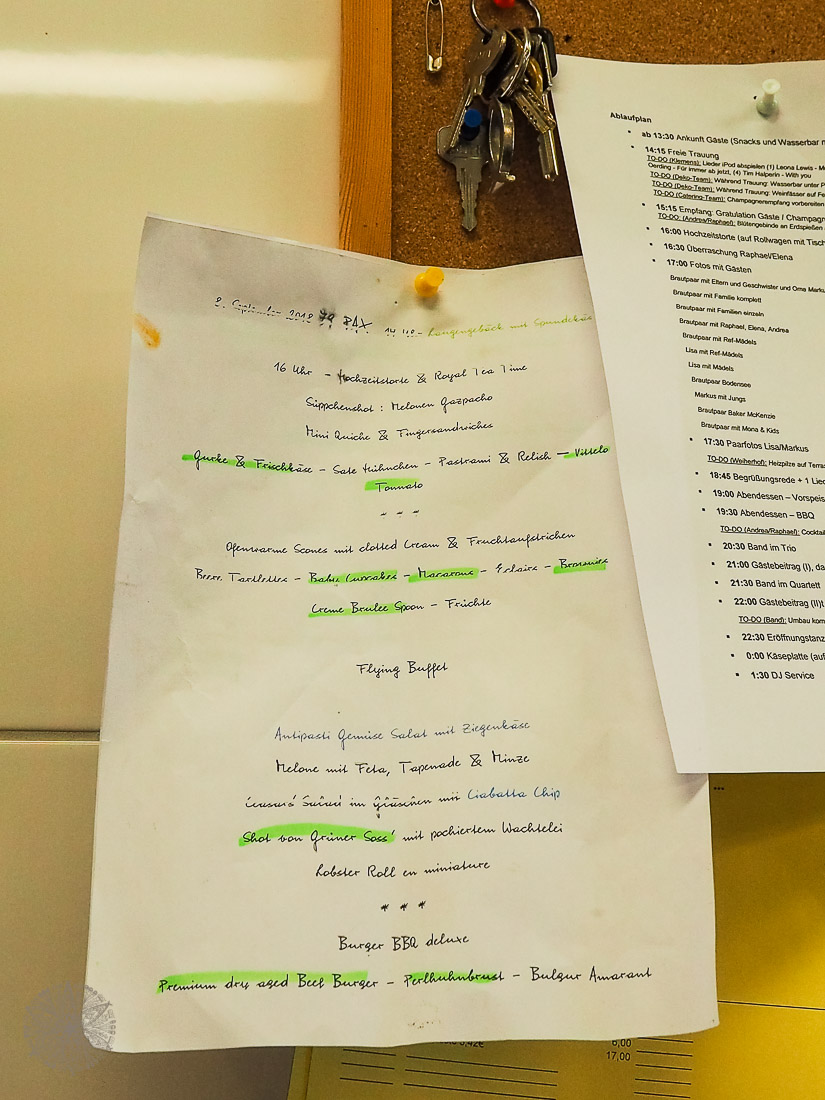 8. September 2018 79 PAX 14 Uhr - Laugengebäck mit Spundekäs
16 Uhr - Hochzeitstorte & Royal Tea Time
Süppchenshot : Melonen Gazpacho
Mini Quiche & Fingersandwiches
Gurke & Frischkäse - Sate Hühnchen - Pastrami & Relish - Vittelo
Tonnato
~ ~ ~
Ofenwarme Scones mit clotted Cream & Fruchtaufstrichen
Beeren Tartlettes - Baby Cupcakes - Macarons - Eclairs - Brownies
Creme Brulee Spoon - Früchte
Flying Buffet
Antipasti Gemüse Salat mit Ziegenkäse
Melone mit Feta, Tapenade & Minze
Ceasars' Salad im Gläschen mit Ciabatta Chip
Shot von Grüner Soss' mit pochiertem Wachtelei
Lobster Roll en miniature
* * *
Burger BBQ deluxe
Premium dry aged Beef Burger - Perlhuhnbrust - Bulgur Amarant
Ablaufplan
ab 13:30 Ankunft Gäste (Snacks und Wasserbar
14:15 Freie Trauung
TO-DO (Klemens): Lieder iPod abspielen (1) Leona Lewis -
Oerding - Für immer ab jetzt, (4) Tim Halperin - With you
TO-DO (Deko-Team): Während Trauung: Wasserbar unter
TO-DO (Deko-Team): Während Trauung: Weinfässer auf
TO-DO (Catering-Team): Champagnerempfang vorbereiten
15:15 Empfang: Gratulation Gäste / Champagn
TO-DO (Andrea/Raphael): Blütengebinde an Erdspießen
16:00 Hochzeitstorte (auf Rollwagen mit Tisch
16:30 Überraschung Raphael/Elena
17:00 Fotos mit Gästen
Brautpaar mit Eltern und Geschwister und Oma Marku
Brautpaar mit Familie komplett
Brautpaar mit Familien einzeln
Brautpaar mit Raphael, Elena, Andrea
Brautpaar mit Ref-Mädels
Lisa mit Ref-Mädels
Lisa mit Mädels
Brautpaar Bodensee
Markus mit Jungs
Brautpaar Baker McKenzie
Brautpaar mit Mona & Kids
17:30 Paarfotos Lisa/Markus
TO-DO (Weiherhof): Heizpilze auf Terras
18:45 Begrüßungsrede + 1 Lied
19:00 Abendessen – Vorspeis
19:30 Abendessen – BBQ
TO-DO (Andrea/Raphael): Cocktail
20:30 Band im Trio
21:00 Gästebeitrag (I), da
21:30 Band im Quartett
22:00 Gästebeitrag (II)
TO-DO (Band): Umbau kom
22:30 Eröffnungstanz
0:00 Käseplatte (auf
1:30 DJ Service
6,00
17,00